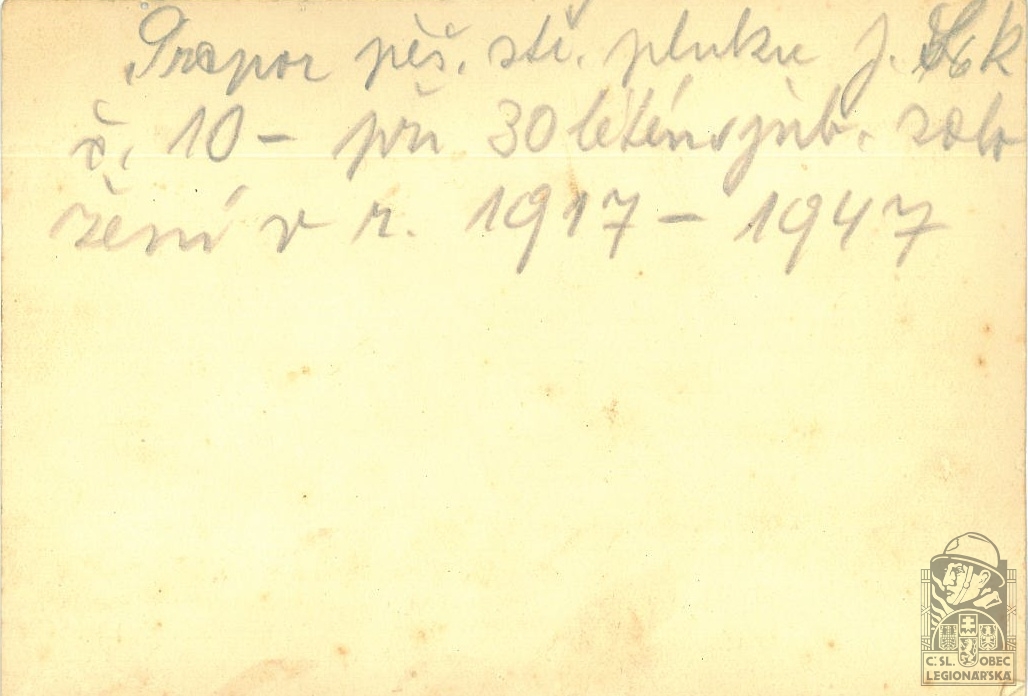 Prapor pěš. stř. pluku J. K
č. 10 – při 30 letém jub. zalo
žení v r. 1917 – 1947
Č.SL. OBEC
LEGIONÁŘSKÁ